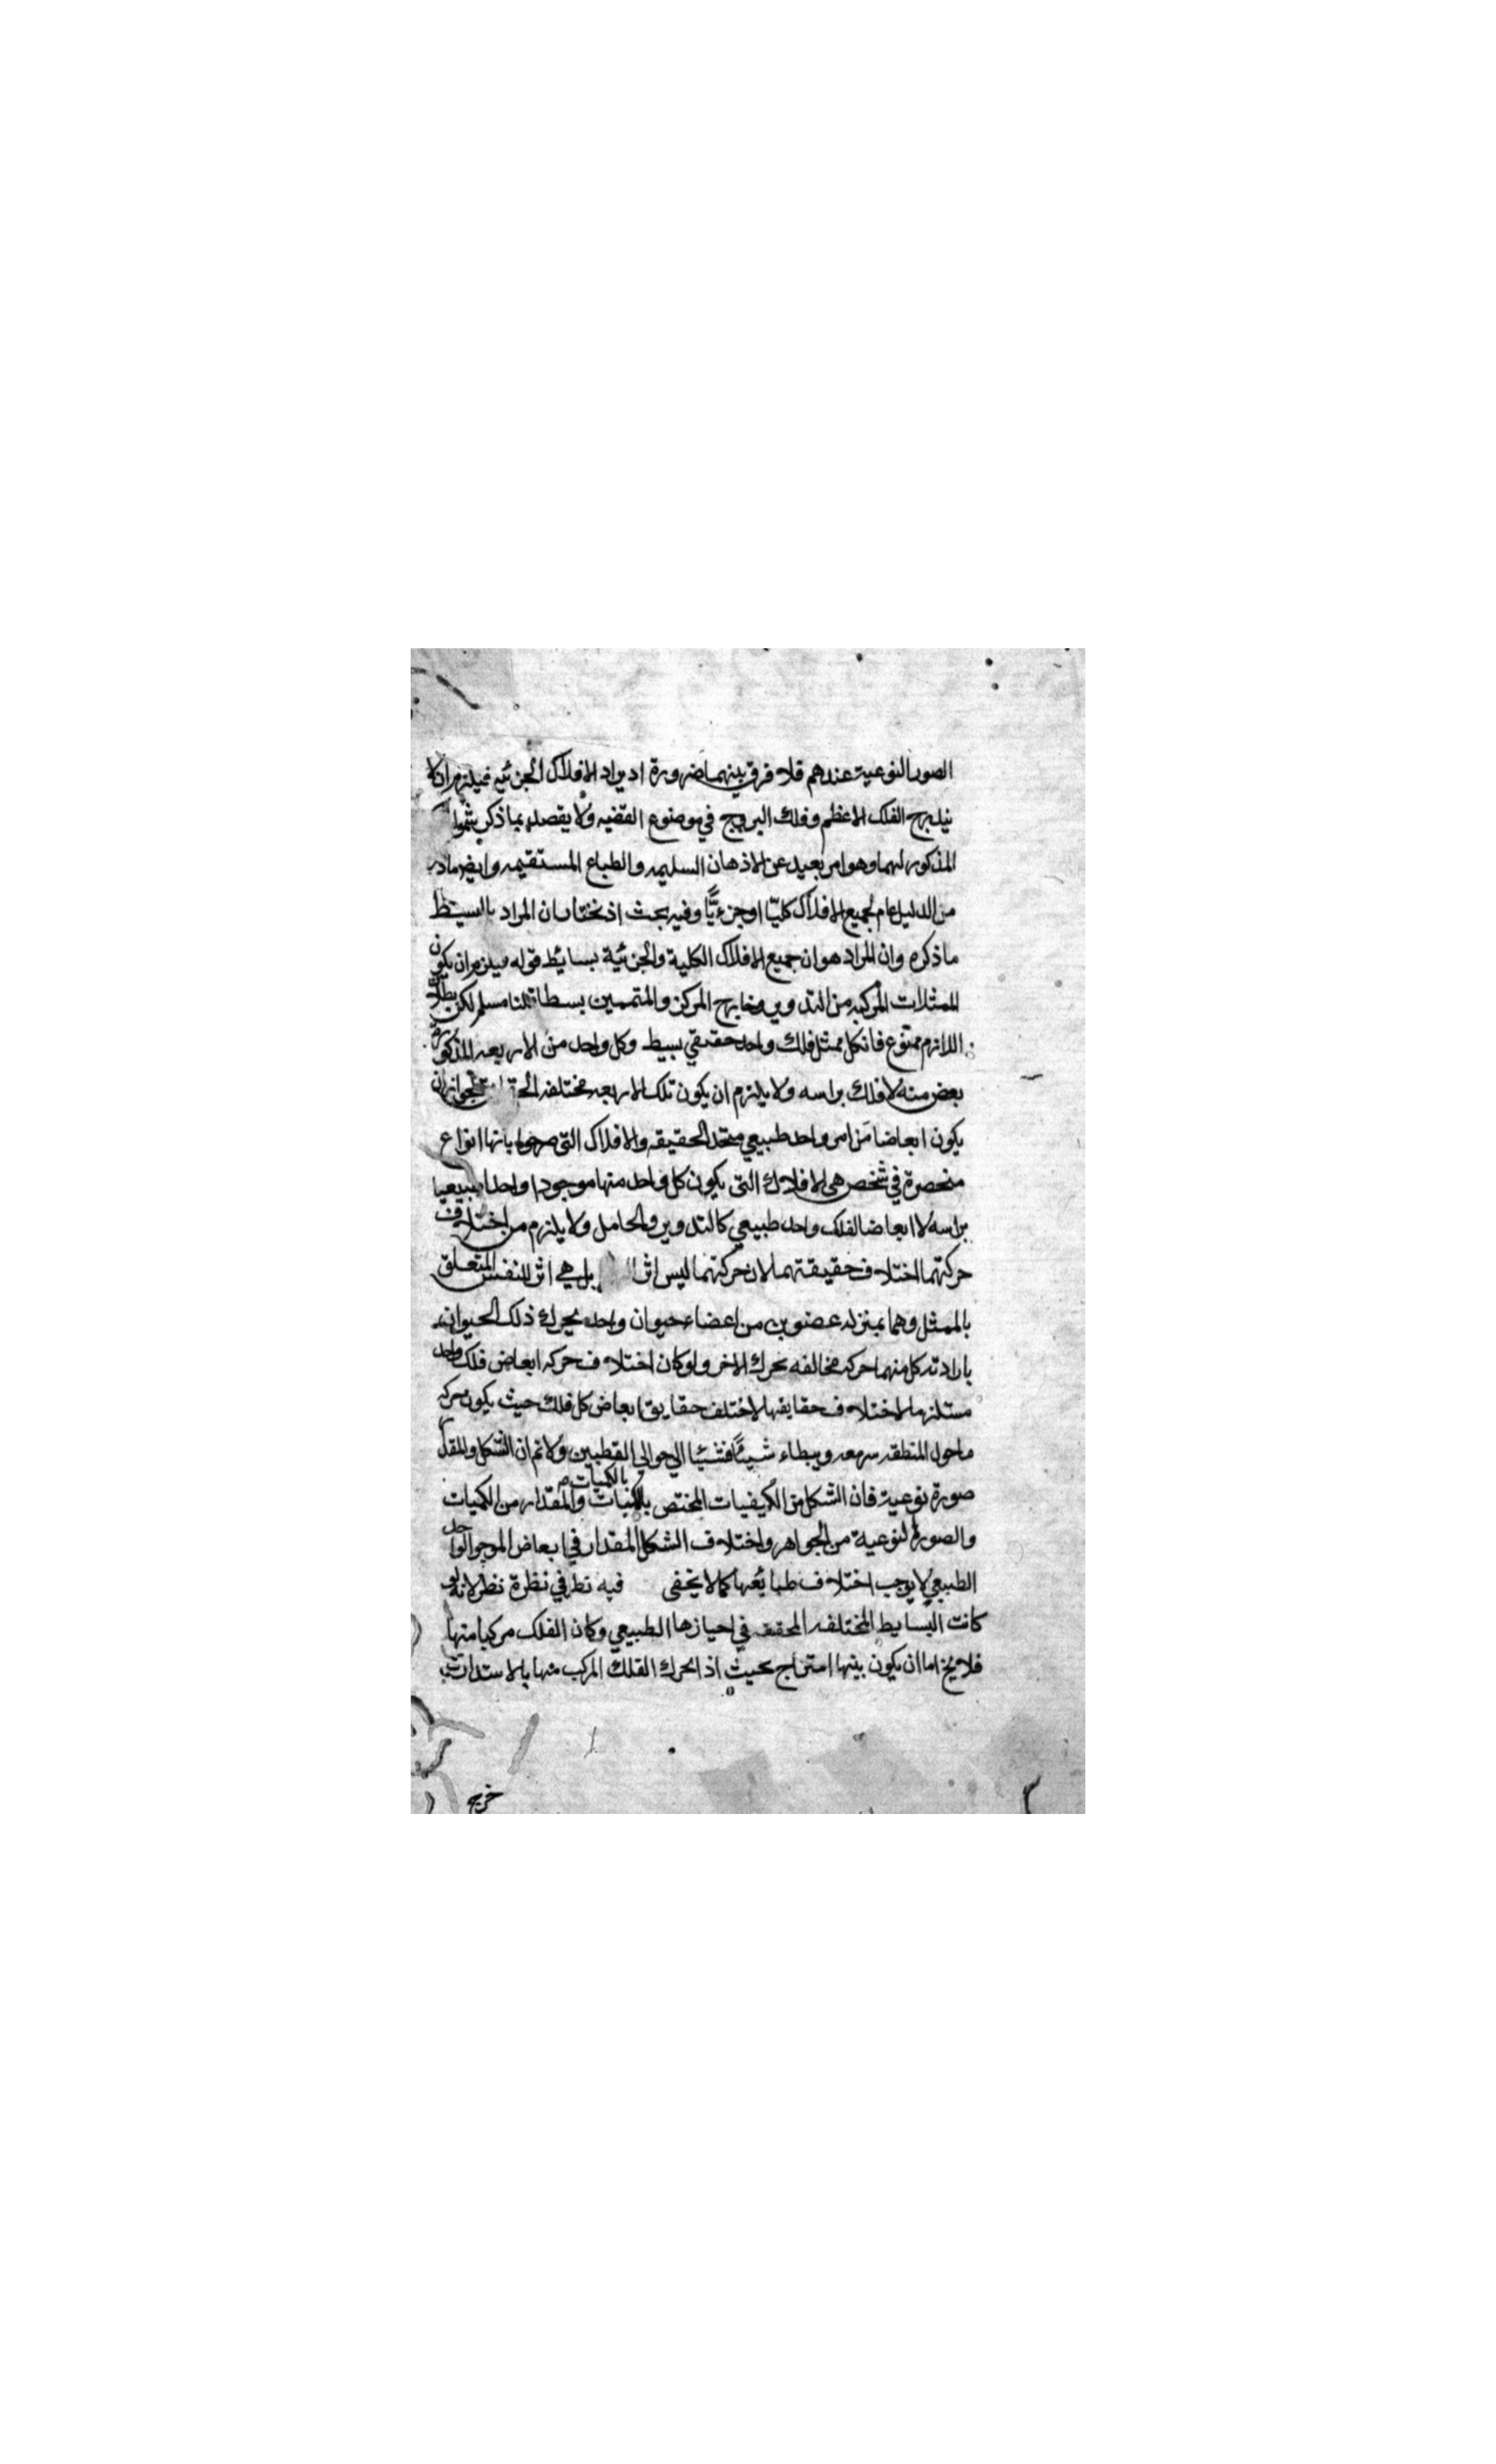 الصور النوعية عندهم فلا فرق بينهما ضرورة اد يراد الافلاك الجزئية فيلزم ان لا
يندرج الفلك الاعظم وفلك البروج في موضوع القضيه ولا يقصد بما ذكر شمول
المذكور لهما وهو امر بعيد عن الاذهان السليمه والطباع المستقيمه وايضا ما ذكر
من الدليل عام لجميع الافلاك كليّا او جزءيًّا وفيه بحث اذ نختار ان المراد بالبسيط
ما ذكره وان المراد هو ان جميع الافلاك الكلية والجزئية بسائط قوله فيلزم ان يكون
الممثلات المركبه من التدوير وخارج المركز والمتممين بسطا قلنا مسلم لكن بطلان
اللازم ممنوع فان كل ممثل فلك واحد حقيقي بسيط وكل واحد من الاربعه المذكورة
بعض منه لا فلك براسه ولا يلزم ان يكون تلك الاربعه مختلفه لجواز ان
يكون ابعاضا من امر واحد طبيعي متحد الحقيقه والافلاك التى صرحوا بانها انواع
منحصرة في شخص هي الافلاك التى يكون كل واحد منها موجودا واحدا طبيعيا
براسه لا ابعاضا لفلك واحد طبيعي كالتدوير والحامل ولا يلزم من اختلاف
حركتهما اختلاف حقيقتهما لان حركتهما ليس اثر بل هي اثر للنفس المتعلق
بالممثل وهما بمنزله عضوين من اعضاء حيوان واحد يحرك ذلك الحيوان
بارادته كل منهما حركه مخالفه لحرك الاخر ولو كان اختلاف حركه ابعاض فلك واحد
مستلزما لاختلاف حقايقها لاختلف حقايق ابعاض كل فلك حيث يكون حركه
ما حول المنطقه سريعه ويبطاء شيئًا فشيئا الى حوالي القطبين ولانم ان الشكل والمقدار
صورة نوعية فان الشكل من الكيفيات المختص بالكميات والمقدار من الكميات
والصورة النوعية من الجواهر واختلاف الشكل المقدار في ابعاض الموجو الواحد
الطبيعي لا يوجب اختلاف طبائعها كما لا يخفى فيه نظر في نظرة نظر لانه لو
كانت البسايط المختلفه المحققه في احيازها الطبيعي وكان الفلك مركبا منها
فلا يخ اما ان يكون بينها امتزاج بحيث اذا تحرك الفلك المركب منها بالاستدارة